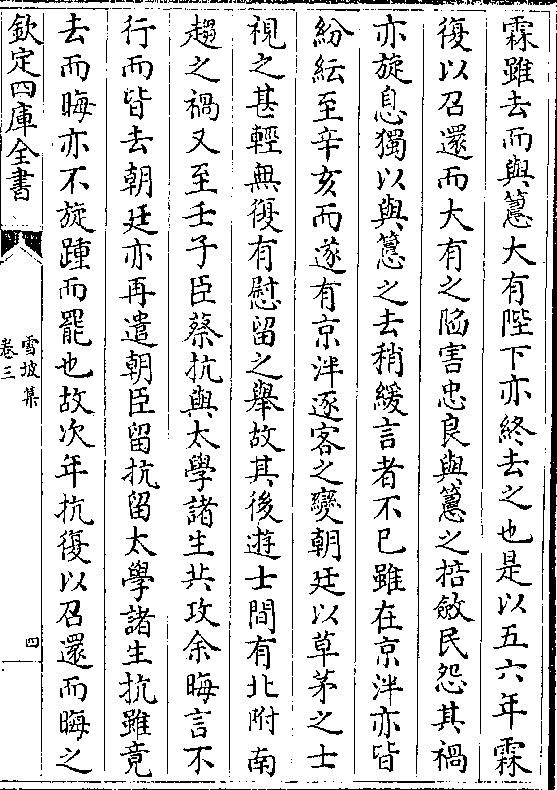 霖雖去而與𥲅大有陛下亦終去之也是以五六年霖
復以召還而大有之陷害忠良與𥲅之掊斂民怨其禍
亦旋息獨以與𥲅之去稍緩言者不已雖在京泮亦皆
紛紜至辛亥而遂有京泮逐客之變朝廷以草茅之士
視之甚輕無復有慰留之舉故其後遊士間有北附南
趨之禍又至壬子臣蔡抗與太學諸生共攻余晦言不
行而皆去朝廷亦再遣朝臣留抗留太學諸生抗雖竟
去而晦亦不旋踵而罷也故次年抗復以召還而晦之
欽定四庫全書
雪坡集
卷三
四